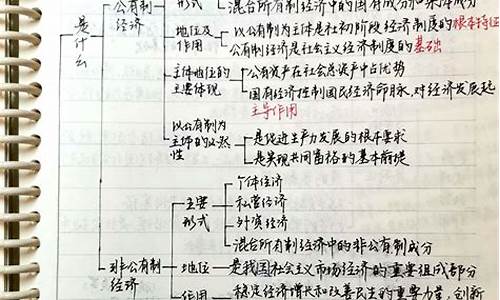 公有制经济
形式
混合所有制经济中的国有成分和集体成分
是什么
地位及作用
公有制为主体是社初阶段经济制度的根本特征
公有制经济是社会主义经济制度的基础
主体地位的主要体现
公有资产在社会总资产中占优势
国有经济控制国民经济命脉,对经济发展起
主导作用
以公有制为主体的必然性
是促进生产力发展的根本要求
是实现共同富裕的基本前提
非公有制经济
主要形式
个体经济
私营经济
外资经济
混合所有制经济中的非公有制成分
地位
是我国社会主义市场经济的重要组成部分
作用
稳定经济增长和改善民生的重要力量,创新